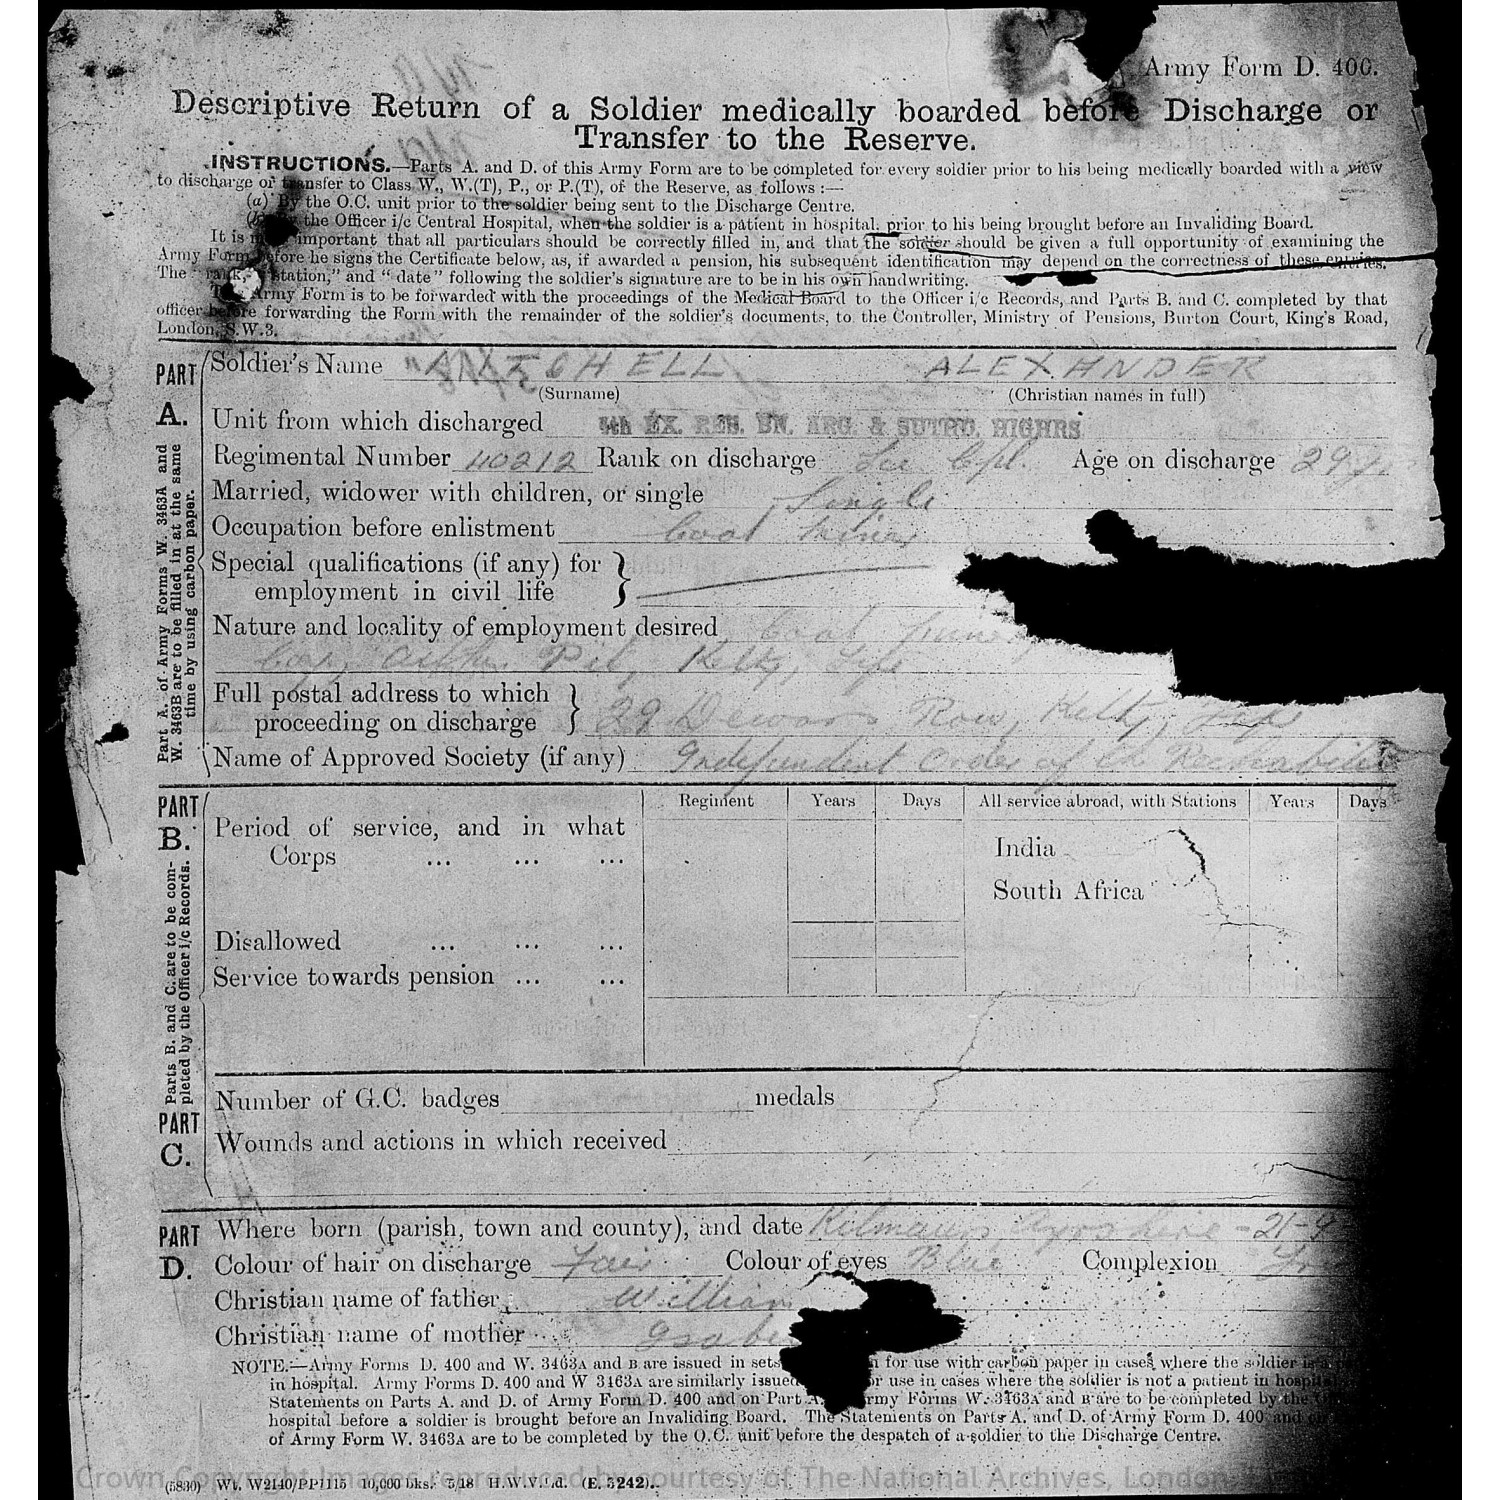 Army Form D. 400.
Descriptive Return of a Soldier medically boarded before Discharge or
Transfer to the Reserve.
INSTRUCTIONS.—Parts A. and D. of this Army Form are to be completed for every soldier prior to his being medically boarded with a view
to discharge or transfer to Class W., W.(T), P., or P.(T), of the Reserve, as follows :—
(a) By the O.C. unit prior to the soldier being sent to the Discharge Centre.
the Officer i/c Central Hospital, when the soldier is a patient in hospital, prior to his being brought before an Invaliding Board.
It is important that all particulars should be correctly filled in, and that the soldier should be given a full opportunity of examining the
Army Form before he signs the Certificate below, as, if awarded a pension, his subsequent identification may depend on the correctness of these entries.
The "rank," "station," and "date" following the soldier's signature are to be in his own handwriting.
Army Form is to be forwarded with the proceedings of the Medical Board to the Officer i/c Records, and Parts B. and C. completed by that
officer before forwarding the Form with the remainder of the soldier's documents, to the Controller, Ministry of Pensions, Burton Court, King's Road,
London, S.W.3.
PART A.
Part A. of Army Forms W. 3463A and
W. 3463B are to be filled in at the same
time by using carbon paper.
Soldier's Name MITCHELL ALEXANDER
(Surname) (Christian names in full)
Unit from which discharged 5th EX. RES. BN. ARG. & SUTHD. HIGHRS
Regimental Number 40212 Rank on discharge Lce Cpl. Age on discharge 29
Married, widower with children, or single Single
Occupation before enlistment Coal Miner
Special qualifications (if any) for
employment in civil life
Nature and locality of employment desired Coal
Pit, Kelty, Fife
Full postal address to which
proceeding on discharge 29 Dewars Row, Kelty, Fife
Name of Approved Society (if any) Independent Order of
PART B.
Parts B. and C. are to be com-
pleted by the Officer i/c Records.
Regiment Years Days All service abroad, with Stations Years Days
Period of service, and in what
Corps ... ... ...
India
South Africa
Disallowed ... ... ...
Service towards pension ... ...
PART C.
Number of G.C. badges medals
Wounds and actions in which received
PART D.
Where born (parish, town and county), and date Kilmaurs Ayrshire - 21-9
Colour of hair on discharge Fair Colour of eyes Blue Complexion
Christian name of father William
Christian name of mother
NOTE.—Army Forms D. 400 and W. 3463A and B are issued in sets for use with carbon paper in cases where the soldier is a
in hospital. Army Forms D. 400 and W 3463A are similarly issued for use in cases where the soldier is not a patient in hospital
Statements on Parts A. and D. of Army Form D. 400 and on Part A. Army Forms W. 3463A and B are to be completed by the
hospital before a soldier is brought before an Invaliding Board. The Statements on Parts A. and D. of Army Form D. 400 and
of Army Form W. 3463A are to be completed by the O.C. unit before the despatch of a soldier to the Discharge Centre.
Crown Copyright Images reproduced by courtesy of The National Archives, London,
(5830) Wt. W2140/PP1115 10,000 bks. 5/18 H.W.V.Ld. (E. 3242).